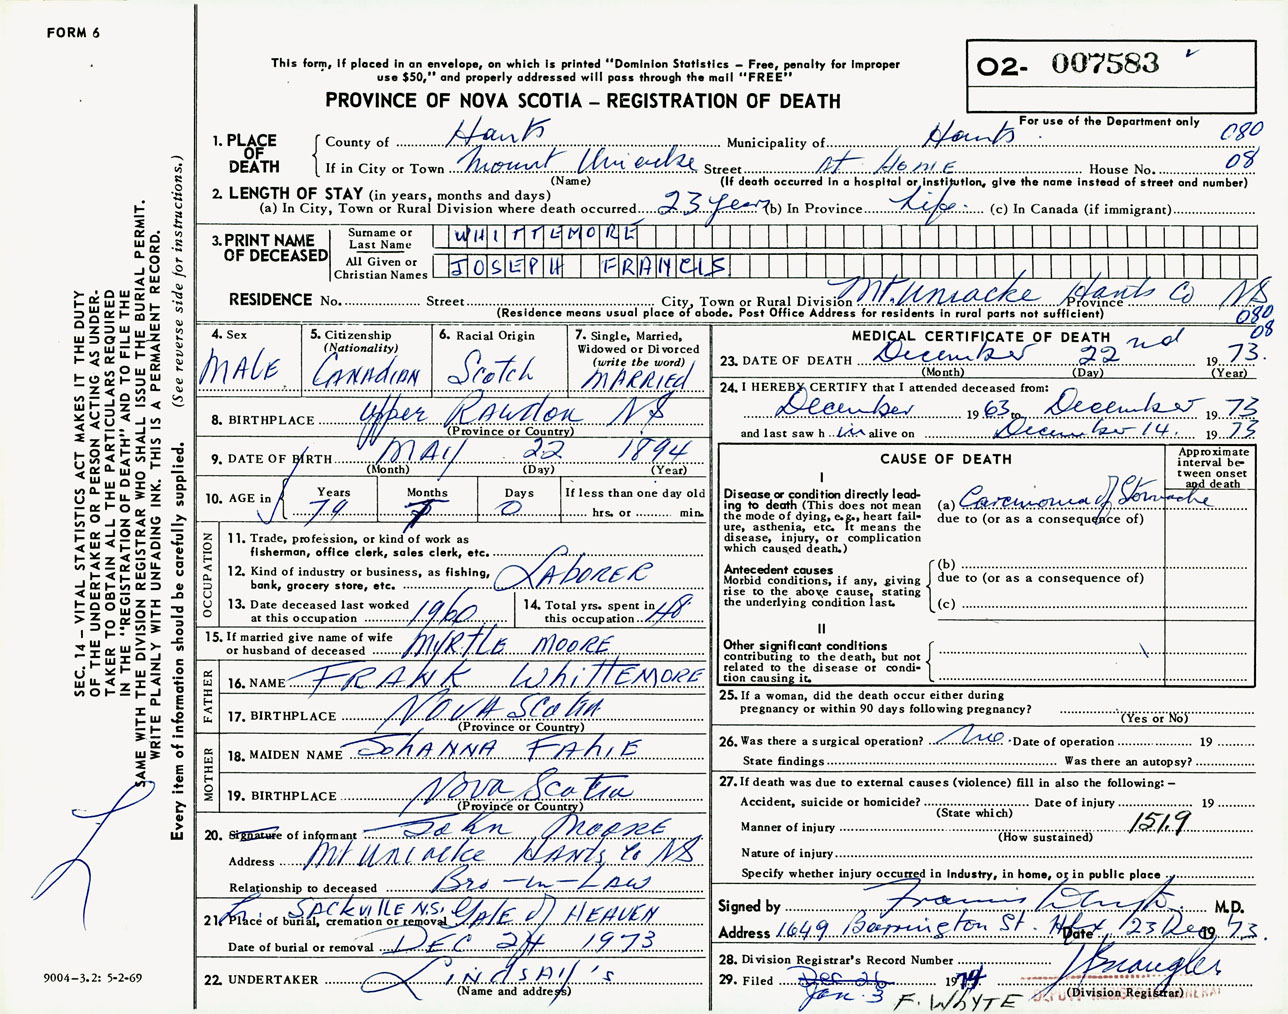 FORM 6
This form, if placed in an envelope, on which is printed "Dominion Statistics – Free, penalty for improper
use $50," and properly addressed will pass through the mail "FREE"
PROVINCE OF NOVA SCOTIA – REGISTRATION OF DEATH
02- 007583
For use of the Department only
080
08
1. PLACE OF DEATH
County of Hants Municipality of Hants
If in City or Town Mount Uniacke Street AT HOME House No.
(Name) (If death occurred in a hospital or institution, give the name instead of street and number)
2. LENGTH OF STAY (in years, months and days)
(a) In City, Town or Rural Division where death occurred 23 years (b) In Province Life. (c) In Canada (if immigrant)
3. PRINT NAME OF DECEASED
Surname or Last Name WHITTEMORE
All Given or Christian Names JOSEPH FRANCIS
RESIDENCE No. Street City, Town or Rural Division Mt. Uniacke Hants Co Province NS
(Residence means usual place of abode. Post Office Address for residents in rural parts not sufficient)
080
08
4. Sex MALE
5. Citizenship (Nationality) CANADIAN
6. Racial Origin Scotch
7. Single, Married, Widowed or Divorced (write the word) MARRIED
8. BIRTHPLACE Upper Rawdon NS
(Province or Country)
9. DATE OF BIRTH MAY 22 1894
(Month) (Day) (Year)
10. AGE in Years 79 Months 7 Days 0 If less than one day old hrs. or min.
OCCUPATION
11. Trade, profession, or kind of work as
fisherman, office clerk, sales clerk, etc.
12. Kind of industry or business, as fishing,
bank, grocery store, etc. LABORER
13. Date deceased last worked
at this occupation 1960
14. Total yrs. spent in
this occupation 48
15. If married give name of wife
or husband of deceased MYRTLE MOORE
FATHER
16. NAME FRANK WHITTEMORE
17. BIRTHPLACE NOVA SCOTIA
(Province or Country)
MOTHER
18. MAIDEN NAME JOHANNA FAHIE
19. BIRTHPLACE NOVA SCOTIA
(Province or Country)
20. Signature of informant John MOORE
Address Mt UNIACKE HANTS Co NS
Relationship to deceased BRO-IN-LAW
21. Place of burial, cremation or removal SACKVILLE N.S. GATE of HEAVEN
Date of burial or removal DEC 24 1973
22. UNDERTAKER LINDSAY'S
(Name and address)
MEDICAL CERTIFICATE OF DEATH
23. DATE OF DEATH December 22nd 1973.
(Month) (Day) (Year)
24. I HEREBY CERTIFY that I attended deceased from:
December 1963 to December 1973
and last saw him alive on December 14. 1973.
CAUSE OF DEATH
Approximate interval between onset and death
I
Disease or condition directly leading to death (This does not
mean the mode of dying, e.g., heart failure, asthenia, etc. It means the
disease, injury, or complication
which caused death.)
(a) Carcinoma of Stomache
due to (or as a consequence of)
Antecedent causes
Morbid conditions, if any, giving
rise to the above cause, stating
the underlying condition last.
(b)
due to (or as a consequence of)
(c)
II
Other significant conditions
contributing to the death, but not
related to the disease or condition causing it.
25. If a woman, did the death occur either during
pregnancy or within 90 days following pregnancy?
(Yes or No)
26. Was there a surgical operation? no Date of operation 19
State findings Was there an autopsy?
27. If death was due to external causes (violence) fill in also the following: –
Accident, suicide or homicide? Date of injury 19
(State which)
Manner of injury 151.9
(How sustained)
Nature of injury
Specify whether injury occurred in industry, in home, or in public place
Signed by Francis M.D.
Address 1649 Barrington St. Hfx Date 23 Dec 1973.
28. Division Registrar's Record Number
29. Filed Dec 26 1974
Jan. 3 F. WHYTE
(Division Registrar)
DEPUTY REGISTRAR GENERAL
SEC. 14 – VITAL STATISTICS ACT MAKES IT THE DUTY
OF THE UNDERTAKER OR PERSON ACTING AS UNDERTAKER TO OBTAIN ALL THE PARTICULARS REQUIRED
IN THE "REGISTRATION OF DEATH" AND TO FILE THE
SAME WITH THE DIVISION REGISTRAR WHO SHALL ISSUE THE BURIAL PERMIT.
WRITE PLAINLY WITH UNFADING INK. THIS IS A PERMANENT RECORD.
Every item of information should be carefully supplied. (See reverse side for instructions.)
9004–3.2: 5-2-69